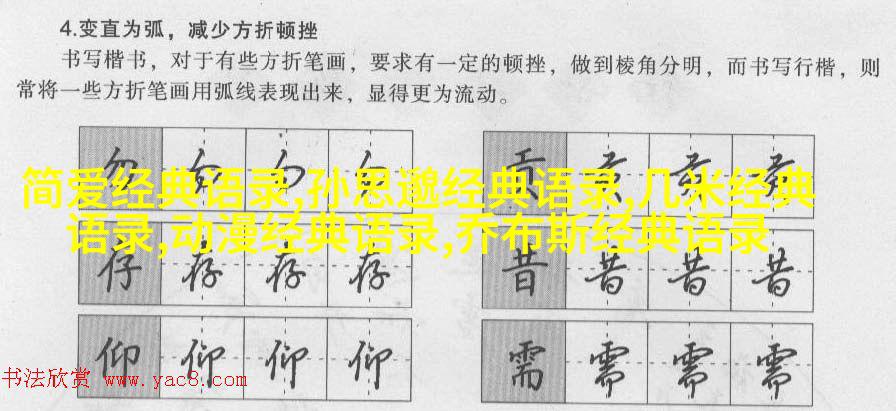 4.变直为弧，减少方折顿挫
书写楷书，对于有些方折笔画，要求有一定的顿挫，做到棱角分明，而书写行楷，则
常将一些方折笔画用弧线表现出来，显得更为流动。
简爱经典语录,孙思邈经典语录,几米经典
语录,动漫经典语录,乔布斯经典语录
贡 贡 贡 贡
存 存 存
昔 昔 昔 昔
仰 仰 仰 仰
需 需 需 需
书法欣赏 www.yac8.com